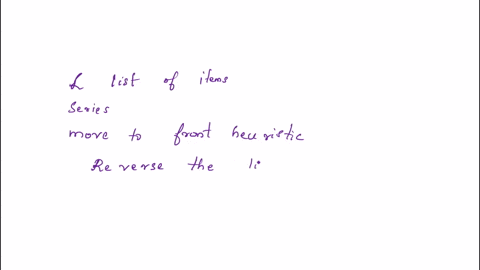 L list of items
Series
move to front heuristic
Reverse the li